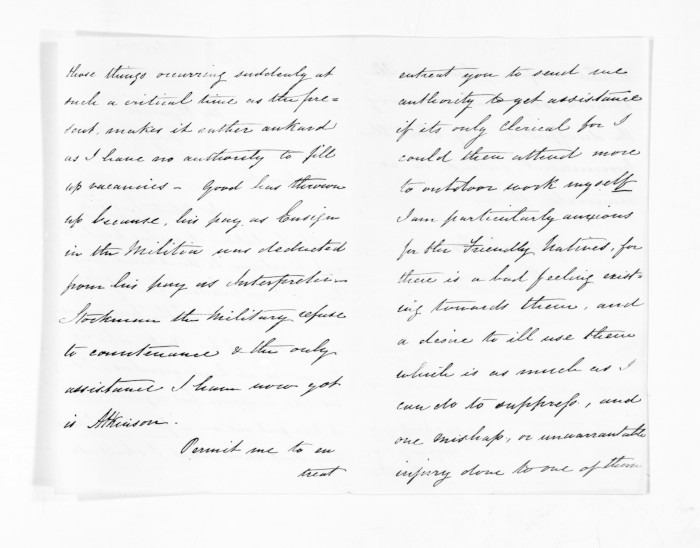 those things occurring suddenly at
such a critical time as the pre=
sent, makes it rather aukard
as I have no authority to fill
up vacancies - Good has thrown
up because, his pay as Ensign
in the Militia was deducted
from his pay as Interpreter -
Stockman the Military refuse
to countenance & the only
assistance I have now got
is Atkinson.
Permit me to en
treat
entreat you to send me
authority to get assistance
if its only Clerical for I
could then attend more
to outdoor work myself
I am particularly anxious
for the Friendly Natives, for
there is a bad feeling exist-
ing towards them, and
a desire to ill use them
which is as much as I
can do to suppress, and
one mishap, or unwarrantable
injury done to one of them